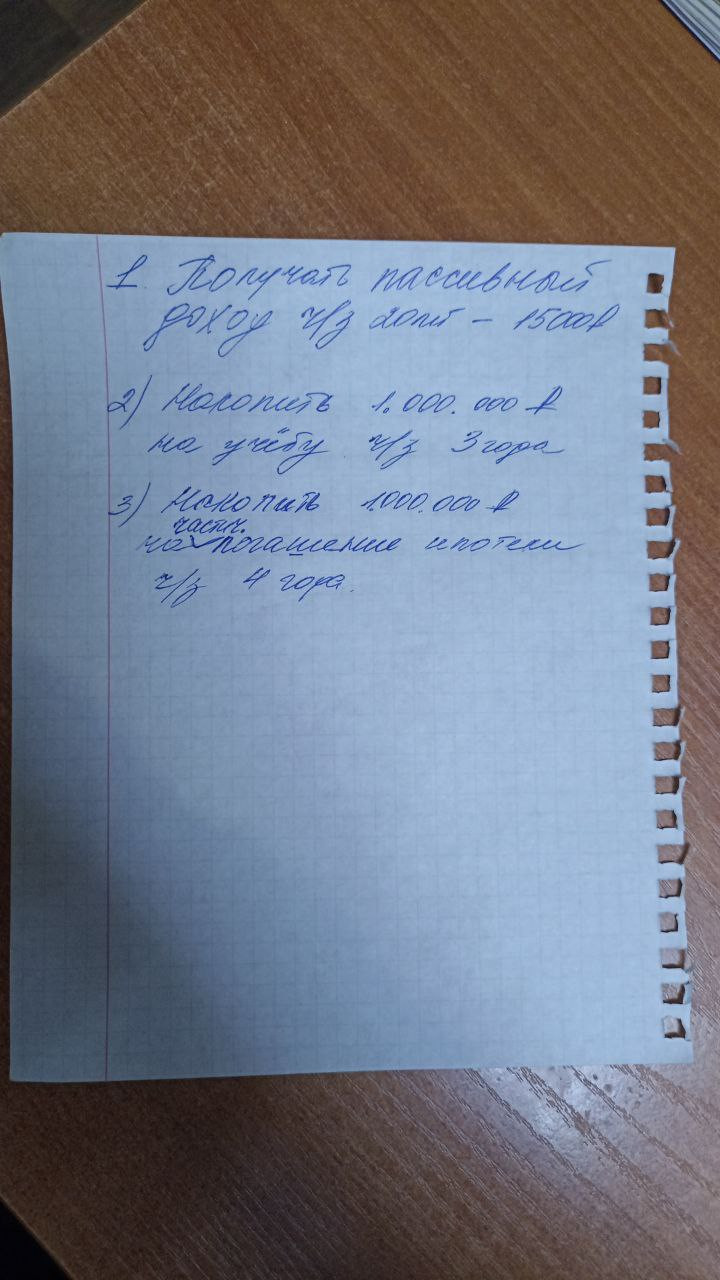 1 Получать пассивный
доход ч/з 20лет – 15000₽
2) Накопить 1.000.000 ₽
на учёбу ч/з 3 года
3) Накопить 1.000.000 ₽
частич.
на погашение ипотеки
ч/з 4 года.